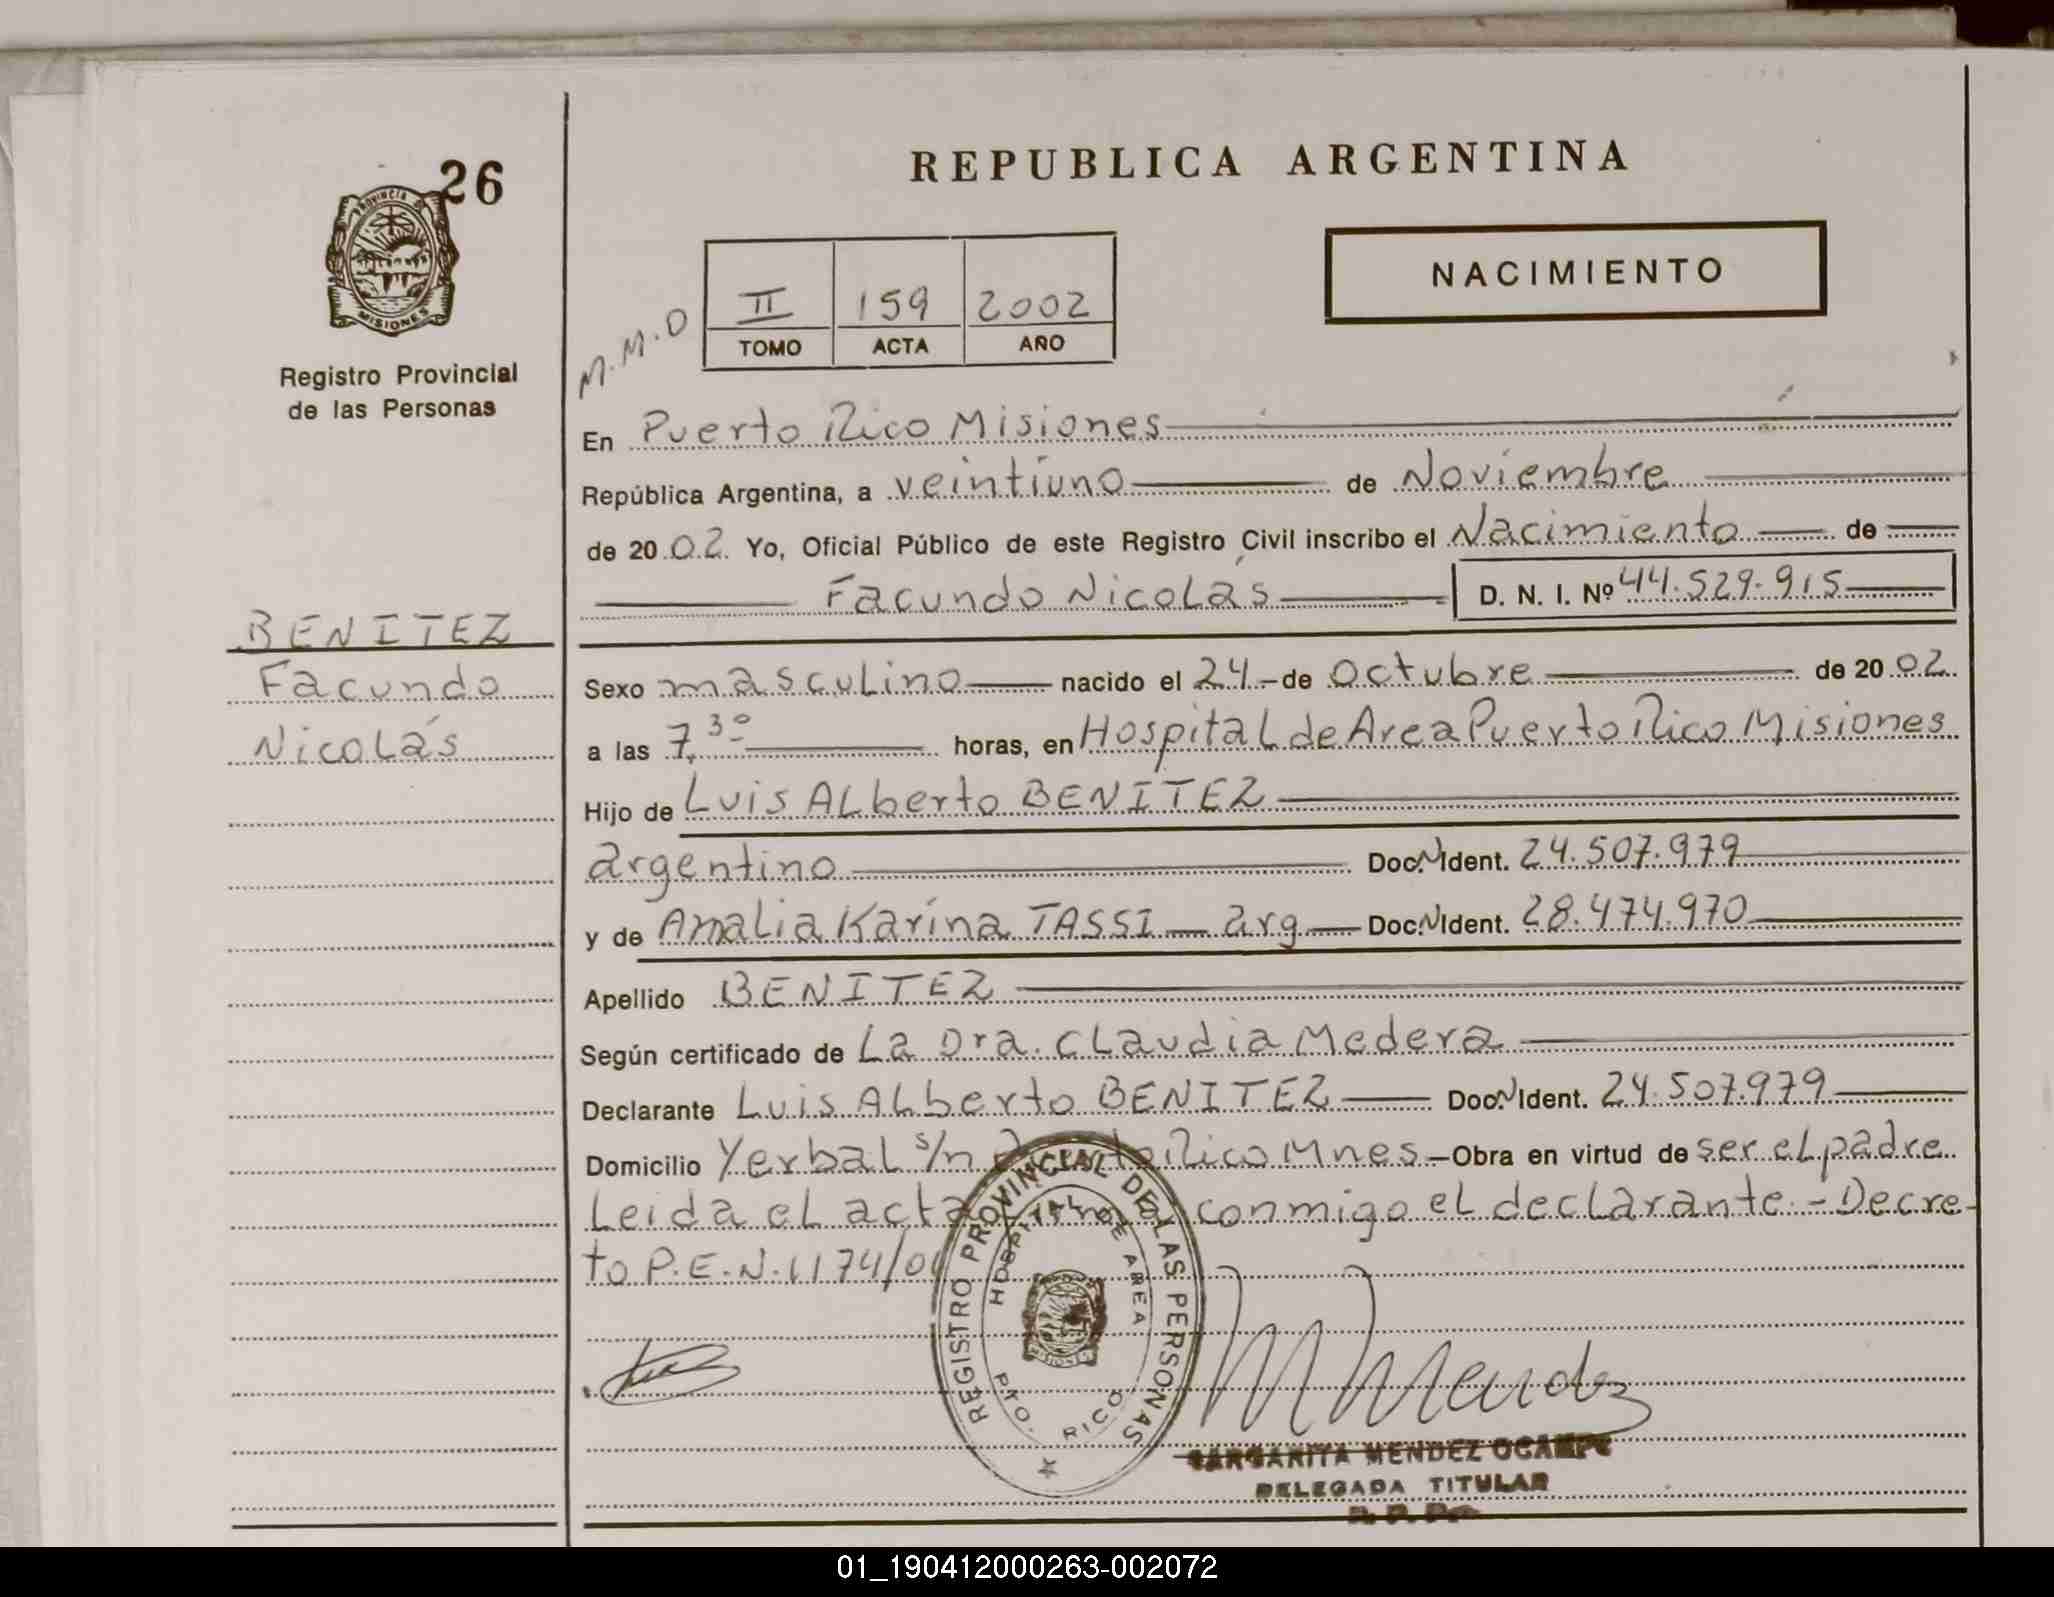 26
PROVINCIA DE
MISIONES
Registro Provincial
de las Personas
BENITEZ
Facundo
Nicolás
REPUBLICA ARGENTINA
NACIMIENTO
M.M.O
II 159 2002
TOMO ACTA AÑO
En Puerto Rico Misiones
República Argentina, a veintiuno de Noviembre
de 20 02. Yo, Oficial Público de este Registro Civil inscribo el Nacimiento de
Facundo Nicolás D. N. I. Nº 44.529.915
Sexo masculino nacido el 24 de Octubre de 20 02
a las 7,30 horas, en Hospital de Area Puerto Rico Misiones
Hijo de Luis Alberto BENITEZ
argentino Doc. N Ident. 24.507.979
y de Amalia Karina TASSI arg Doc. N Ident. 28.474.970
Apellido BENITEZ
Según certificado de La Dra. Claudia Medera
Declarante Luis Alberto BENITEZ Doc. N Ident. 24.507.979
Domicilio Yerbal s/n Puerto Rico Mnes - Obra en virtud de ser el padre
Leida el acta firma conmigo el declarante.- Decre-
to P.E.N. 1174/0
REGISTRO PROVINCIAL DE LAS PERSONAS
HOSPITAL DE AREA
PTO. RICO
MISIONES
M Mendez
MARGARITA MENDEZ OCAMPO
DELEGADA TITULAR
01_190412000263-002072